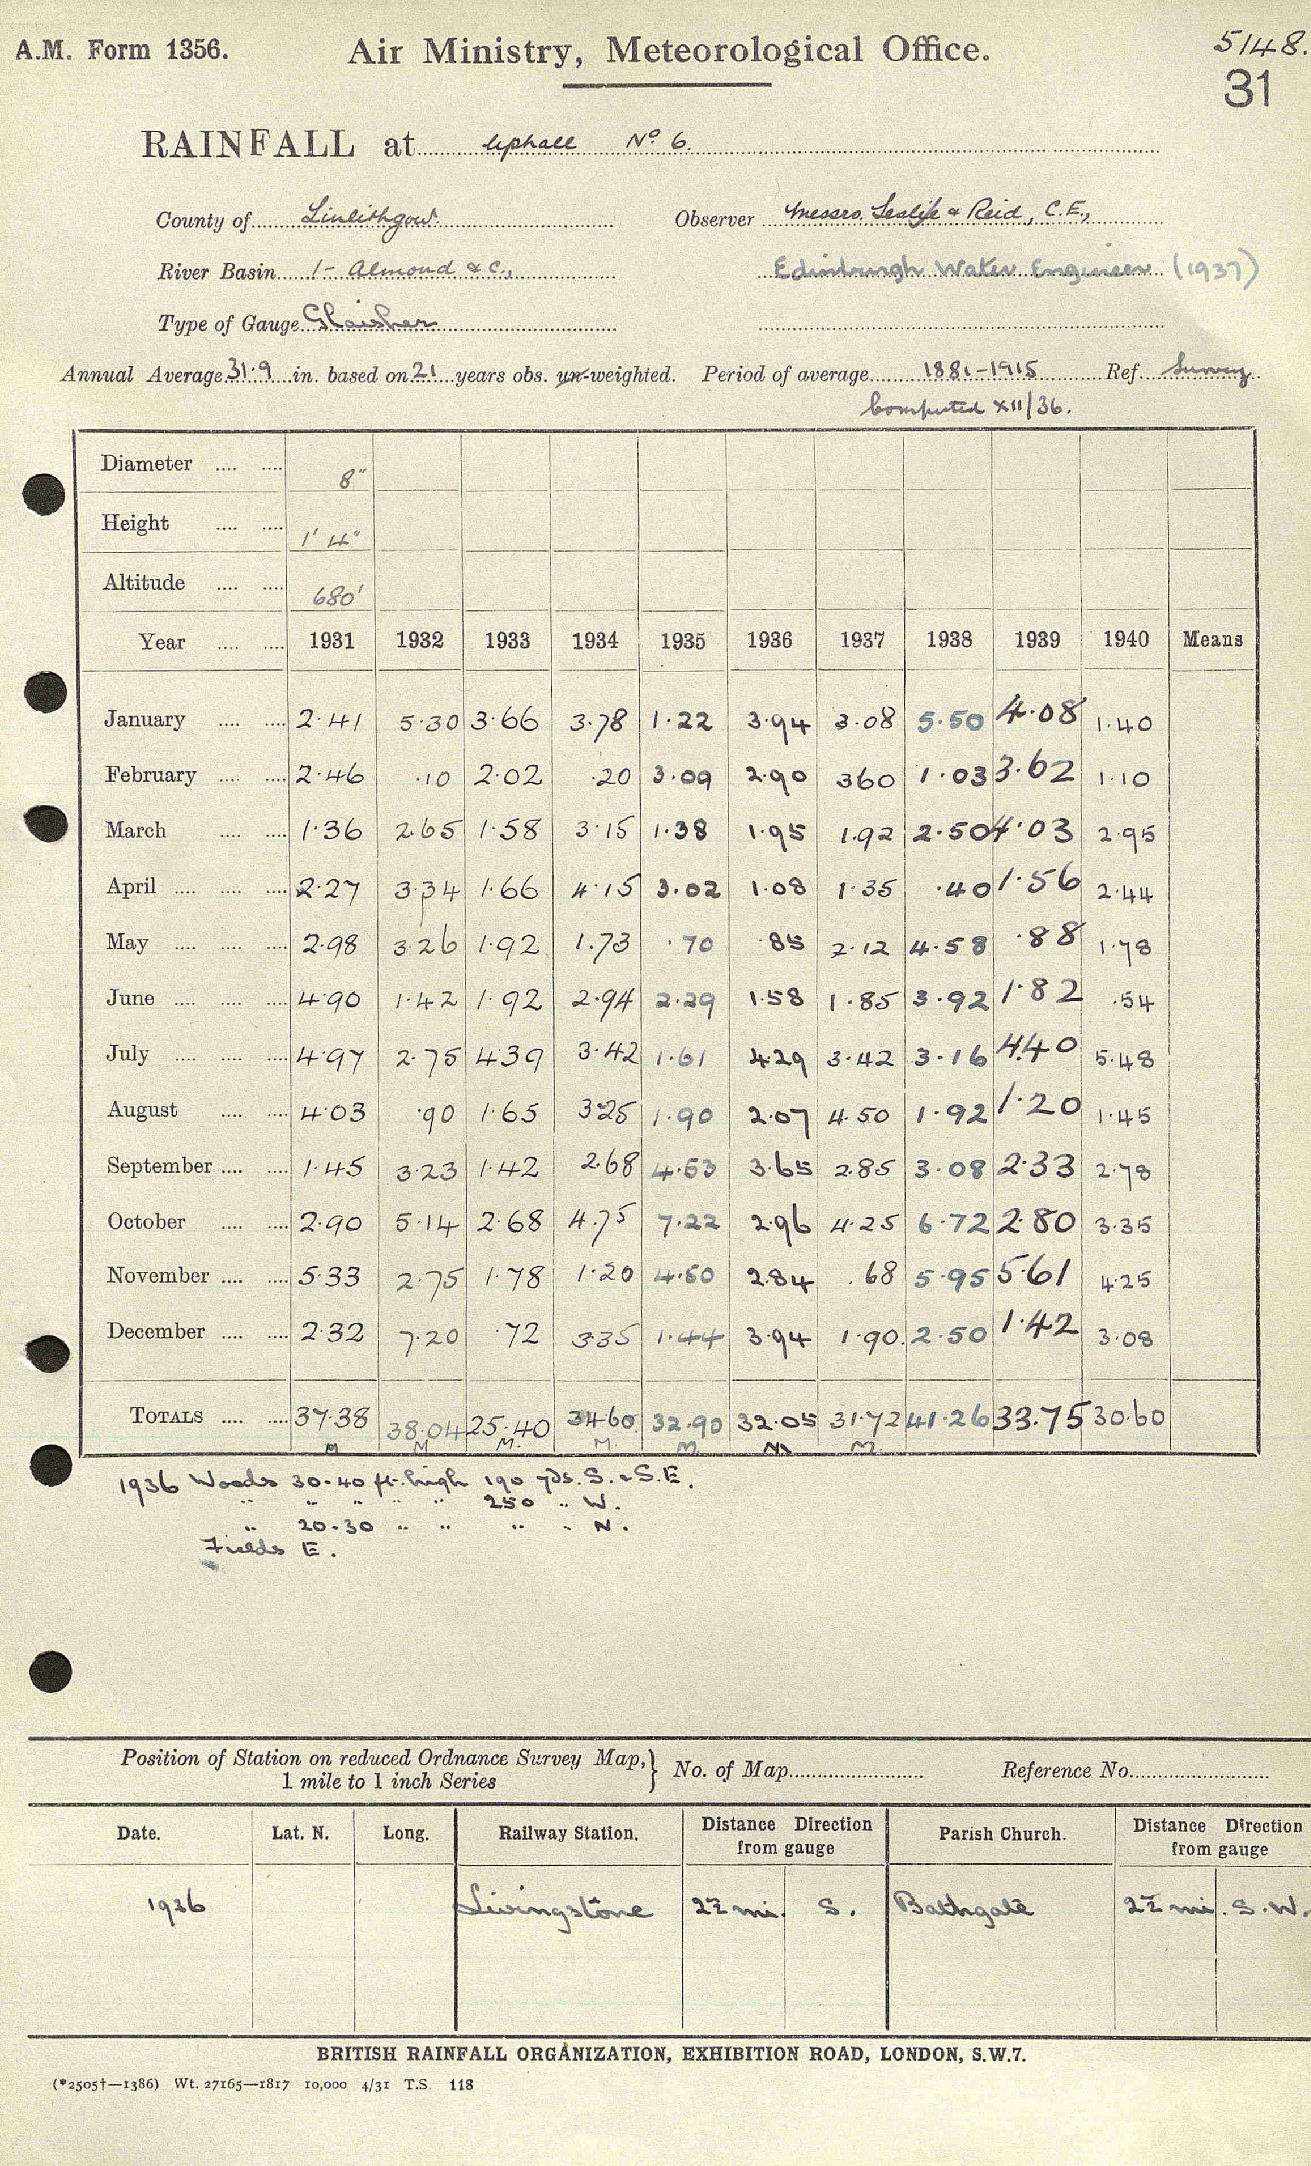 A.M. Form 1356. Air Ministry, Meteorological Office. 5148.
31
RAINFALL at Uphall No. 6.
County of Linlithgow. Observer Messrs. Leslie & Reid, C.E.,
River Basin 1 - Almond &c., Edinburgh Water Engineer (1937)
Type of Gauge Glaisher
Annual Average 31.9 in. based on 21 years obs. un-weighted. Period of average 1881-1915 Ref. Survey
Computed XII/36.
Diameter 8"
Height 1' 4"
Altitude 680'
Year 1931 1932 1933 1934 1935 1936 1937 1938 1939 1940 Means
January 2.41 5.30 3.66 3.78 1.22 3.94 3.08 5.50 4.08 1.40
February 2.46 .10 2.02 .20 3.09 2.90 3.60 1.03 3.62 1.10
March 1.36 2.65 1.58 3.15 1.38 1.95 1.92 2.50 4.03 2.95
April 2.27 3.34 1.66 4.15 3.02 1.08 1.35 .40 1.56 2.44
May 2.98 3.26 1.92 1.73 .70 .85 2.12 4.58 .88 1.78
June 4.90 1.42 1.92 2.94 2.29 1.58 1.85 3.92 1.82 .54
July 4.97 2.75 4.39 3.42 1.61 4.29 3.42 3.16 4.40 5.48
August 4.03 .90 1.65 3.25 1.90 2.07 4.50 1.92 1.20 1.45
September 1.45 3.23 1.42 2.68 4.53 3.65 2.85 3.08 2.33 2.78
October 2.90 5.14 2.68 4.75 7.22 2.96 4.25 6.72 2.80 3.35
November 5.33 2.75 1.78 1.20 4.50 2.84 .68 5.95 5.61 4.25
December 2.32 7.20 .72 3.35 1.44 3.94 1.90 2.50 1.42 3.08
TOTALS 37.38 38.04 25.40 34.60 32.90 32.05 31.72 41.26 33.75 30.60
M M M. M. M. M M.
1936 Woods 30-40 ft. high 190 yds. S. & S.E.
" " " " " 250 " W.
" 20-30 " " " " N.
Fields E.
Position of Station on reduced Ordnance Survey Map, 1 mile to 1 inch Series } No. of Map Reference No.
Date. Lat. N. Long. Railway Station. Distance Direction from gauge Parish Church. Distance Direction from gauge
1936 Livingstone 2½ mi. S. Bathgate 2½ mi. S.W.
BRITISH RAINFALL ORGANIZATION, EXHIBITION ROAD, LONDON, S.W.7.
(*2505†—1386) Wt. 27165—1817 10,000 4/31 T.S. 118